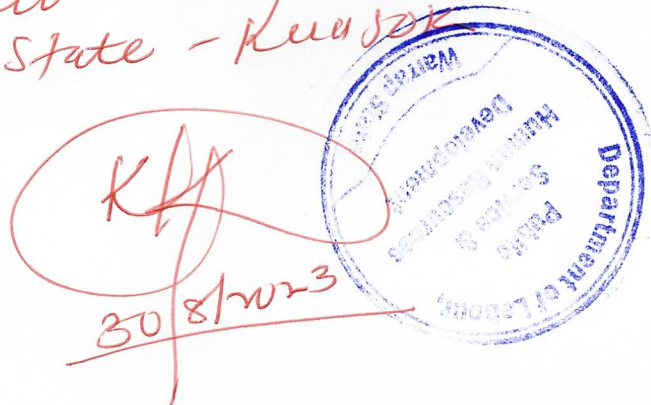 State - Kuajok
30/8/2023
Department of Labour,
Public
Service &
Human Resources
Development
Warrap State